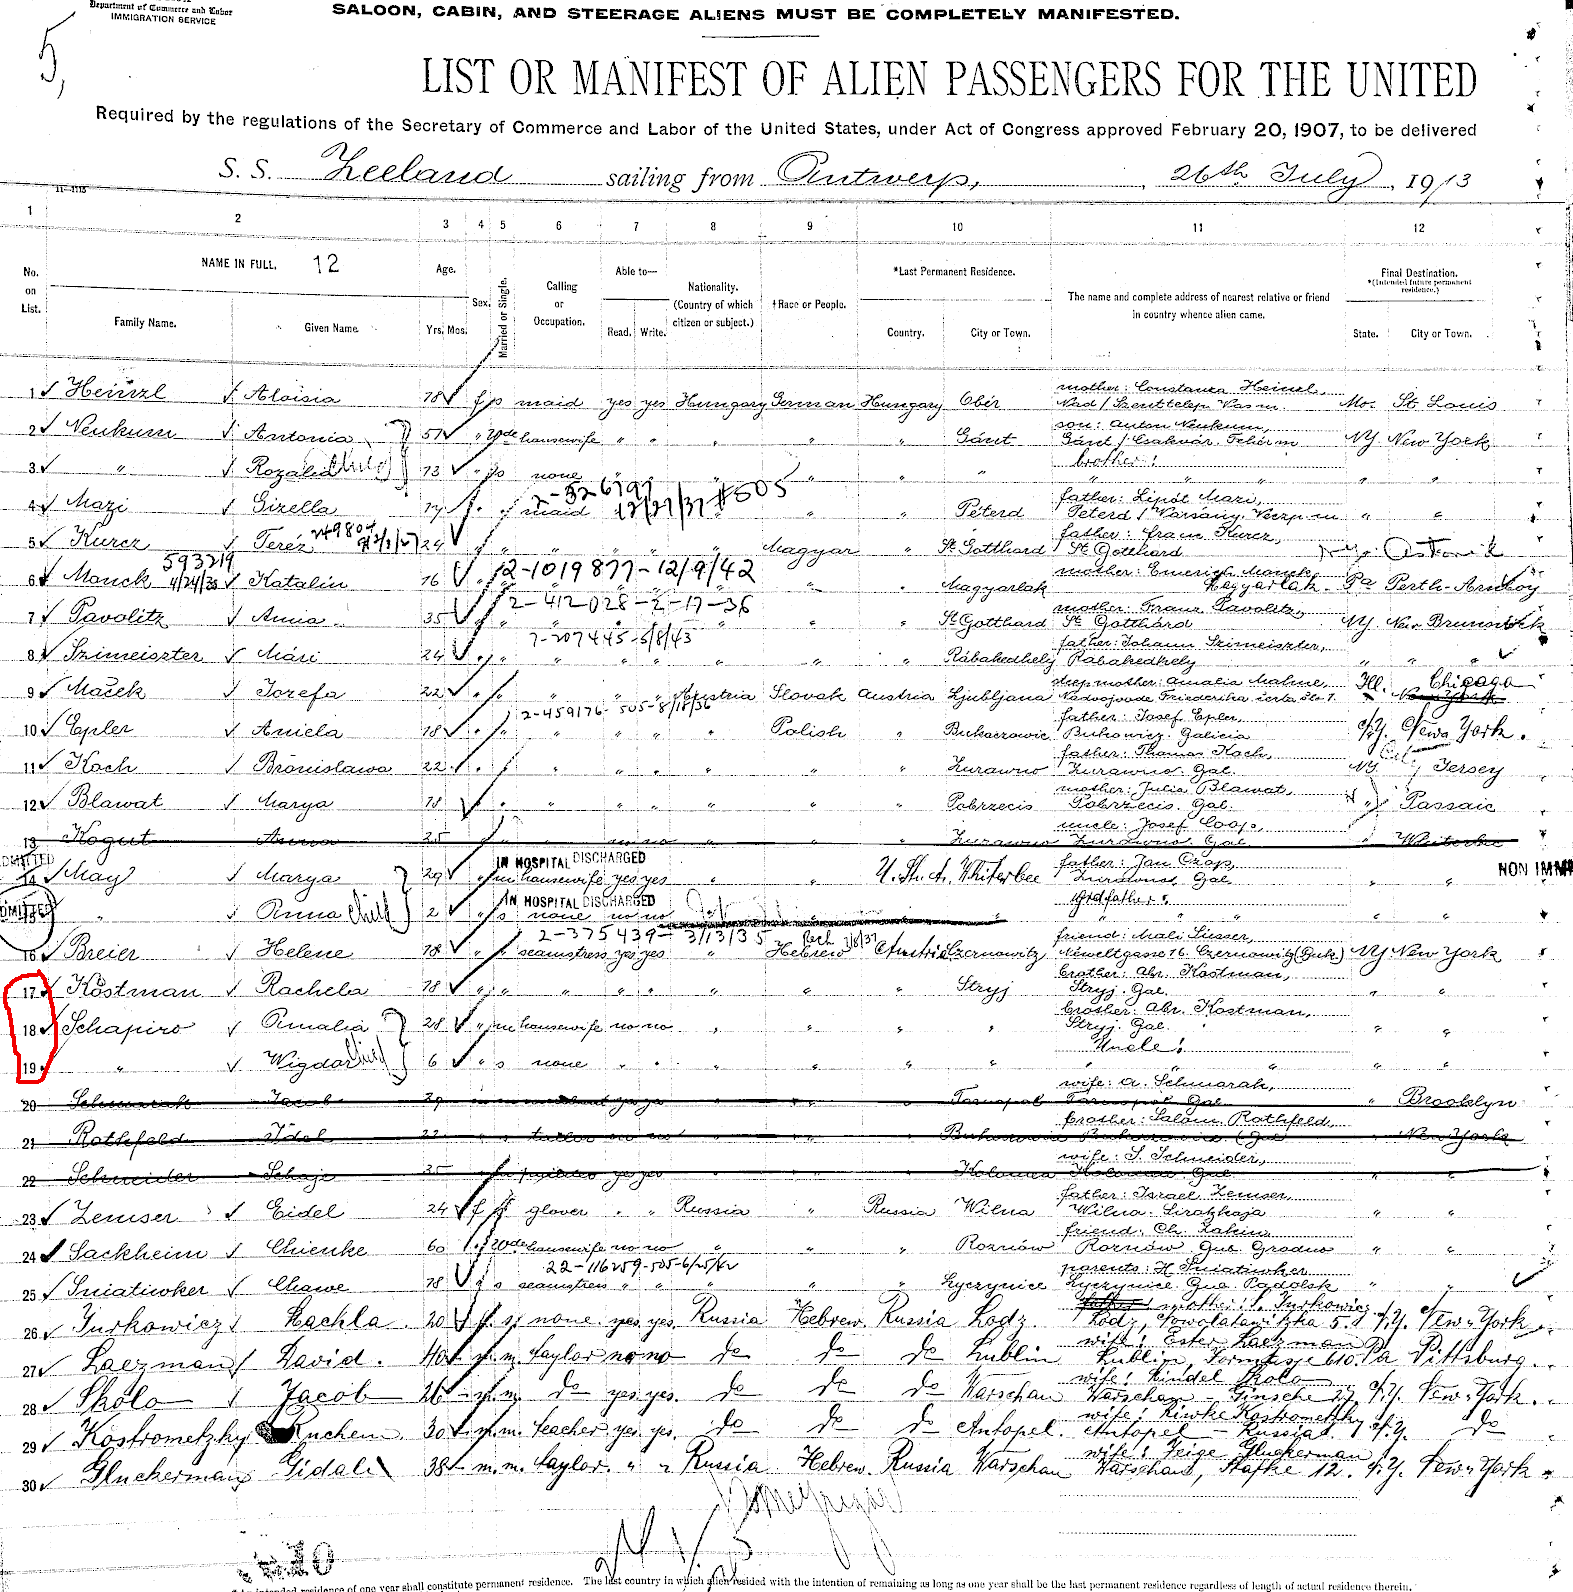 Department of Commerce and Labor
IMMIGRATION SERVICE
SALOON, CABIN, AND STEERAGE ALIENS MUST BE COMPLETELY MANIFESTED.
5,
LIST OR MANIFEST OF ALIEN PASSENGERS FOR THE UNITED
Required by the regulations of the Secretary of Commerce and Labor of the United States, under Act of Congress approved February 20, 1907, to be delivered
S. S. Zeeland sailing from Antwerp, 26th July, 1913
1 2 3 4 5 6 7 8 9 10 11 12
No. on List. NAME IN FULL. 12 Family Name. Given Name. Age. Yrs. Mos. Sex. Married or Single. Calling or Occupation. Able to— Read. Write. Nationality. (Country of which citizen or subject.) †Race or People. *Last Permanent Residence. Country. City or Town. The name and complete address of nearest relative or friend in country whence alien came. Final Destination. *(Intended future permanent residence.) State. City or Town.
mother: Constanza Heinzl,
1 Heinzl Aloisia 18 f s maid yes yes Hungary German Hungary Obér Mo. St. Louis
son: Anton Neukum,
2 Neukum Antonia 51 " wde housewife " " " " " Gánt Gánt / Csakvár. Fehérm NY New York
brother:
3 " Rozalia child 13 " s none " " " " " " " " "
2-526797 12/27/37 #505
father: Lipót Mazi,
4 Mazi Gizella 17 maid " " Peterd Peterd / Varsány Veszpm " "
father: Franz Kurcz,
5 Kurcz Teréz 24 " " " " Magyar " St. Gotthard St. Gotthard
593219 4/24/35 2-1019877-12/9/42
mother: Emerich Manck
6 Manck Katalin 16 " " Magyarlak Magyarlak Pa Perth-Amboy
2-412028-2-17-36
mother: Franz Pavolitz,
7 Pavolitz Anna 35 " " St. Gotthard St. Gotthard NY New Brunswick
2-207445-5/8/43
father: Johann Szimeiszter,
8 Szimeiszter Mári 24 " " " " " " " Rábakedhely Rabakedhely " "
stepmother: Amalia
9 Maček Jozefa 22 " " " " " Austria Slovak Austria Ljubljana Ill. Chicago
2-459176-505-8/18/36
father: Josef Epler,
10 Epler Aniela 18 " " " " " Polish " Galicia N.Y. New York.
father: Thomas Koch,
11 Koch Bronislawa 22 " " " " " " " Zurawno Zurawno. Gal. Jersey City
mother: Julia Blawat,
12 Blawat Marya 18 " " " " " " " Pobrzecis Pobrzecis. Gal. Passaic
uncle: Josef Coop,
13 Kogut Anna 25 no no " " " Zurawno Zurawno Gal. "
IN HOSPITAL DISCHARGED
father: Jan
14 May Marya 29 " m housewife yes yes " " U.St.A. Zurawno, Gal. " " NON IMM
IN HOSPITAL DISCHARGED
grdfather:
ADMITTED " Anna child 2 " s none no no " " " "
2-375439- 3/13/35
friend: Mali Süsser,
16 Breier Helene 18 " s seamstress yes yes " Hebrew Austria Czernowitz Neweltgasse 16. Czernowitz (Buk.) NY New York
brother: Abr. Kostman,
17 Kostman Rachela 18 " " " " " " " " Stryj Stryj. Gal. " "
brother: Abr. Kostman,
18 Schapiro Amalia 28 " m housewife no no " " " " Stryj. Gal. " "
Uncle:
19 " Wigdor child 6 " s none " " " " " " " " "
wife: A. Schwarah,
20 Schwarah Jacob 29 yes yes " " " Tarnopol Tarnopol Gal. " Brooklyn
brother: Salom Rothfeld,
21 Rothfeld Idel tailor no no " " " New York
wife: S. Schneider,
22 Schneider Schaje 35 yes yes " " " Kolomea Kolomea Gal. " "
father: Israel Zemser,
23 Zemser Eidel 24 f s glover " " Russia " Russia Wilna Wilna " "
friend: Ch.
24 Sackheim Chienke 60 " wde housewife no no " " " Roznów Roznów Gub Grodno " "
22-116259-505-6/25/42
parents: H Sniatiwker
25 Sniatiwker Chawe 18 " s seamstress " " " " " Lyczynice Lyczynice Gu. Podolsk " "
mother: Jurkowicz
26 Jurkowicz Rachla 20 f. s. none yes yes. Russia Hebrew. Russia Lodz Lodz, N.Y. New-York.
wife: Ester Laczman
27 Laczman David. 40 m. m. taylor no no do do do Lublin Lublin, Pa Pittsburg.
wife: Rindel Skolo
28 Skolo Jacob 26 m. m. do yes yes. do do do Warschau Warschau - 27 N.Y. New-York.
wife: Riwke Kostrometzky
29 Kostrometzky Ruchem 30 m. m. teacher yes yes. do do do Antopel. Antopel - Russia. N.Y. do
wife: Feige Gluckerman
30 Gluckerman Gidali 38 m. m. taylor. " " Russia Hebrew. Russia Warschau Warschau, 12. N.Y. New-York
intended residence of one year shall constitute permanent residence. The last country in which alien resided with the intention of remaining as long as one year shall be the last permanent residence regardless of length of actual residence therein.